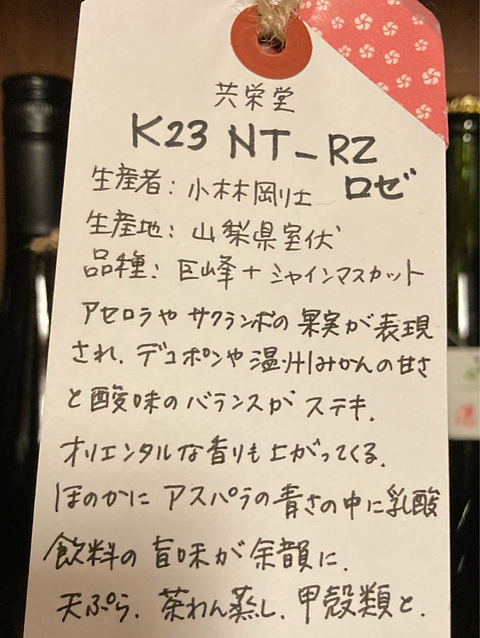 共栄堂
K23 NT_RZ
ロゼ
生産者:小林剛士
生産地:山梨県室伏
品種:巨峰+シャインマスカット
アセロラや サクランボの果実が表現
され、デコポンや温州みかんの甘さ
と酸味のバランスがステキ.
オリエンタルな香りも上がってくる.
ほのかに アスパラの青さの中に乳酸
飲料の旨味が余韻に.
天ぷら、茶わん蒸し、甲殻類と.